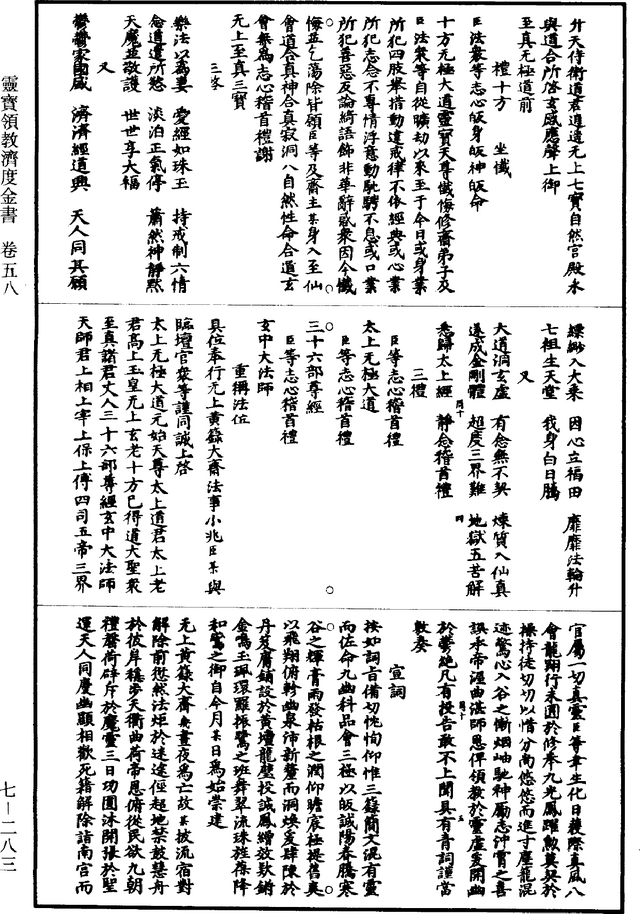 靈寶領教濟度金書　卷五八
七—二八三
升天侍衛道君逍遙无上七寶自然宮殿永
與道合所啓玄感應聲上御
至真无極道前
禮十方　坐懺
臣法衆等志心皈身皈神皈命
十方无極大道靈寶天尊懺悔修齋弟子及
臣法衆等自從曠劫以來至于今日或身業
所犯四肢舉措動違戒律不依經典或心業
所犯志念不專情浮意動馳騁不息或口業
所犯善惡反論綺語飾非華辭惑衆因今懺
悔並乞蕩除皆願臣等及齋主某身入至仙
會道合真神合真寂洞入自然性命合道玄
會無爲志心稽首禮謝
无上至真三寶
三啓
樂法以爲妻　愛經如珠玉　持戒制六情
念道遣所慾　淡泊正氣停　蕭然神靜默
天魔並敬護　世世享大福
又
鬱鬱家國盛　濟濟經道興　天人同其願
縹緲入大乘　因心立福田　靡靡法輪升
七祖生天堂　我身白日騰
又
大道洞玄虛　有念無不契　煉質入仙真
遂成金剛體　超度三界難　地獄五苦解
悉歸太上經　靜念稽首禮
三禮
臣等志心稽首禮
太上无極大道
臣等志心稽首禮
三十六部尊經
臣等志心稽首禮
玄中大法師
重稱法位
具位奉行无上黃籙大齋法事小兆臣某與
臨壇官衆等謹同誠上啓
太上无極大道元始天尊太上道君太上老
君高上玉皇无上玄老十方已得道大聖衆
至真諸君丈人三十六部尊經玄中大法師
天師君上相上宰上保上傅四司五帝三界
官屬一切真靈臣等幸生化日獲際真風八
會龍翔行來圓於修奉九光鳳躍
操持徒切切以惜分尚悠悠而進寸塵籠混
迹驚心入谷之慚烟岫馳神勵志沖霄之喜
誤承帝渥曲湛師恩俾領教於靈虛爰開幽
於鬱絶凡有投告敢不上聞具有青詞謹當
敷奏
宣詞
按如詞言備切愧恂仰惟三籙簡文混有靈
而佐命九幽科品會三極以皈誠陽春騰寒
谷之輝膏雨發枯根之潤仰瞻宸極提
以飛翔俯軫幽泉沛新釐而洞煥爰肆陳於
丹笈庸鋪設於黃壇龍璧投誠鳳繒效
金鳴玉珮環羅振鷺之班舞翠流珠旌葆降
和鸞之御自今月某日爲始崇建
无上黃籙大齋幾晝夜爲亡故某披流宿對
解除前愆然法炬於迷途徑超地禁鼓慧舟
於彼岸穩步天衢曲荷帝恩俯從民欲九朝
禮罄荷辟斥於魔靈三日功圓沐開張於聖
運天人同慶幽顯相歡死籍解除請南宮而